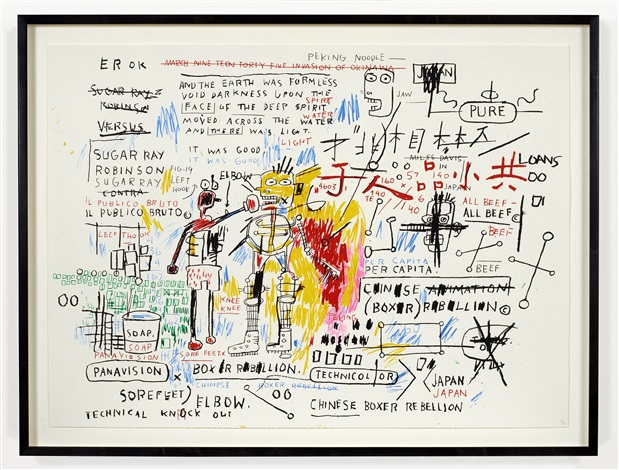 PEKING NOODLE
EROK
MARCH NINE TEEN FORTY FIVE INVASION OF OKINAWA
JAPAN
JAW
PURE
SUGAR RAY
ROBINSON
VERSUS
AND THE EARTH WAS FORMLESS
VOID DARKNESS UPON THE
FACE OF THE DEEP SPIRIT
SPIRIT
MOVED ACROSS THE WATER
WATER
AND THERE WAS LIGHT.
LIGHT
IT WAS GOOD,
IT WAS GOOD,
SUGAR RAY
ROBINSON
SUGAR RAY
CONTRA
FIG-19
LEFT
HOOK
IL PUBLICO BRUTO
IL PUBLICO BRUTO©
ELBOW
MILES DAVIS
IN
JAPAN
于人品小共
LOANS
4603
160 × 57
140
ALL BEEF-
ALL BEEF©
BEEF
BEEF
PER CAPITA
PER CAPITA.
CHINESE ANIMATION
(BOXER) REBELLION©
KNEE
KNEE
PEKING
MOSCOW
SOAP.
SOAP
PANAVISION
PANAVISION
SORE FEET
BOXER REBELLION.
TECHNICOLOR
CHINESE BOXER REBELLION
JAPAN
JAPAN
SOREFEET)
ELBOW.
TECHNICAL KNOCK OUT
CHINESE BOXER REBELLION